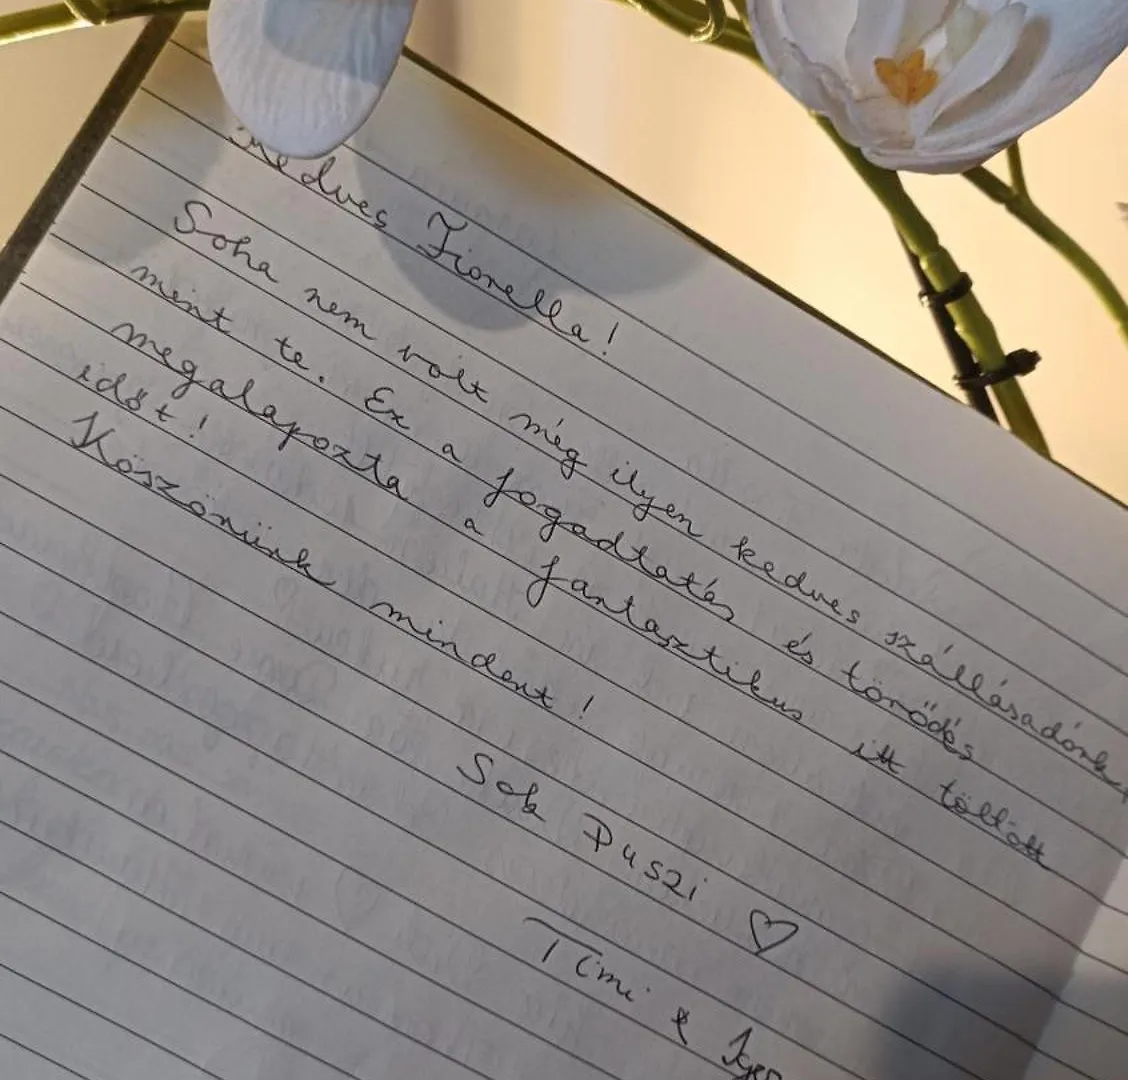 Kedves Fionella!
Soha nem volt még ilyen kedves szállásadónk,
mint te. Ez a fogadtatás és törődés
megalapozta a fantasztikus itt töltött
időt!
Köszönünk mindent!
Sok Puszi ♡
Timi &